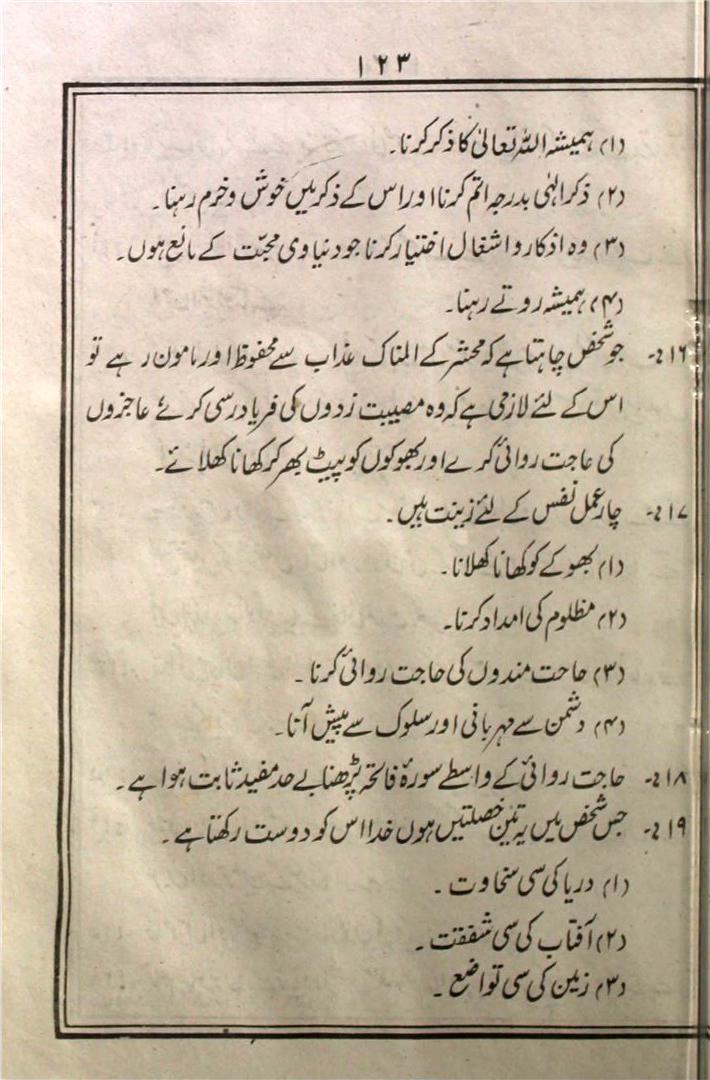 ۱۲۳
(۱) ہمیشہ اللہ تعالیٰ کا ذکر کرنا۔
(۲) ذکر الٰہی بدرجہ اتم کرنا اور اس کے ذکر میں خوش و خرم رہنا۔
(۳) وہ اذکار و اشغال اختیار کرنا جو دنیاوی محبّت کے مانع ہوں۔
(۴) ہمیشہ روتے رہنا۔
۱۶ ؂۔ جو شخص چاہتا ہے کہ محشر کے المناک عذاب سے محفوظ اور مامون رہے تو
اس کے لئے لازمی ہے کہ وہ مصیبت زدوں کی فریاد رسی کرئے عاجزوں
کی حاجت روائی کرے اور بھوکوں کو پیٹ بھر کر کھانا کھلائے۔
۱۷ ؂۔ چار عمل نفس کے لئے زینت ہیں۔
(۱) بھوکے کو کھانا کھلانا۔
(۲) مظلوم کی امداد کرنا۔
(۳) حاجت مندوں کی حاجت روائی کرنا۔
(۴) دشمن سے مہربانی اور سلوک سے پیش آنا۔
۱۸ ؂۔ حاجت روائی کے واسطے سورۂ فاتحہ پڑھنا بے حد مفید ثابت ہوا ہے۔
۱۹ ؂۔ جس شخص میں یہ تین خصلتیں ہوں خدا اس کو دوست رکھتا ہے۔
(۱) دریا کی سی سخاوت۔
(۲) آفتاب کی سی شفقت۔
(۳) زمین کی سی تواضع۔